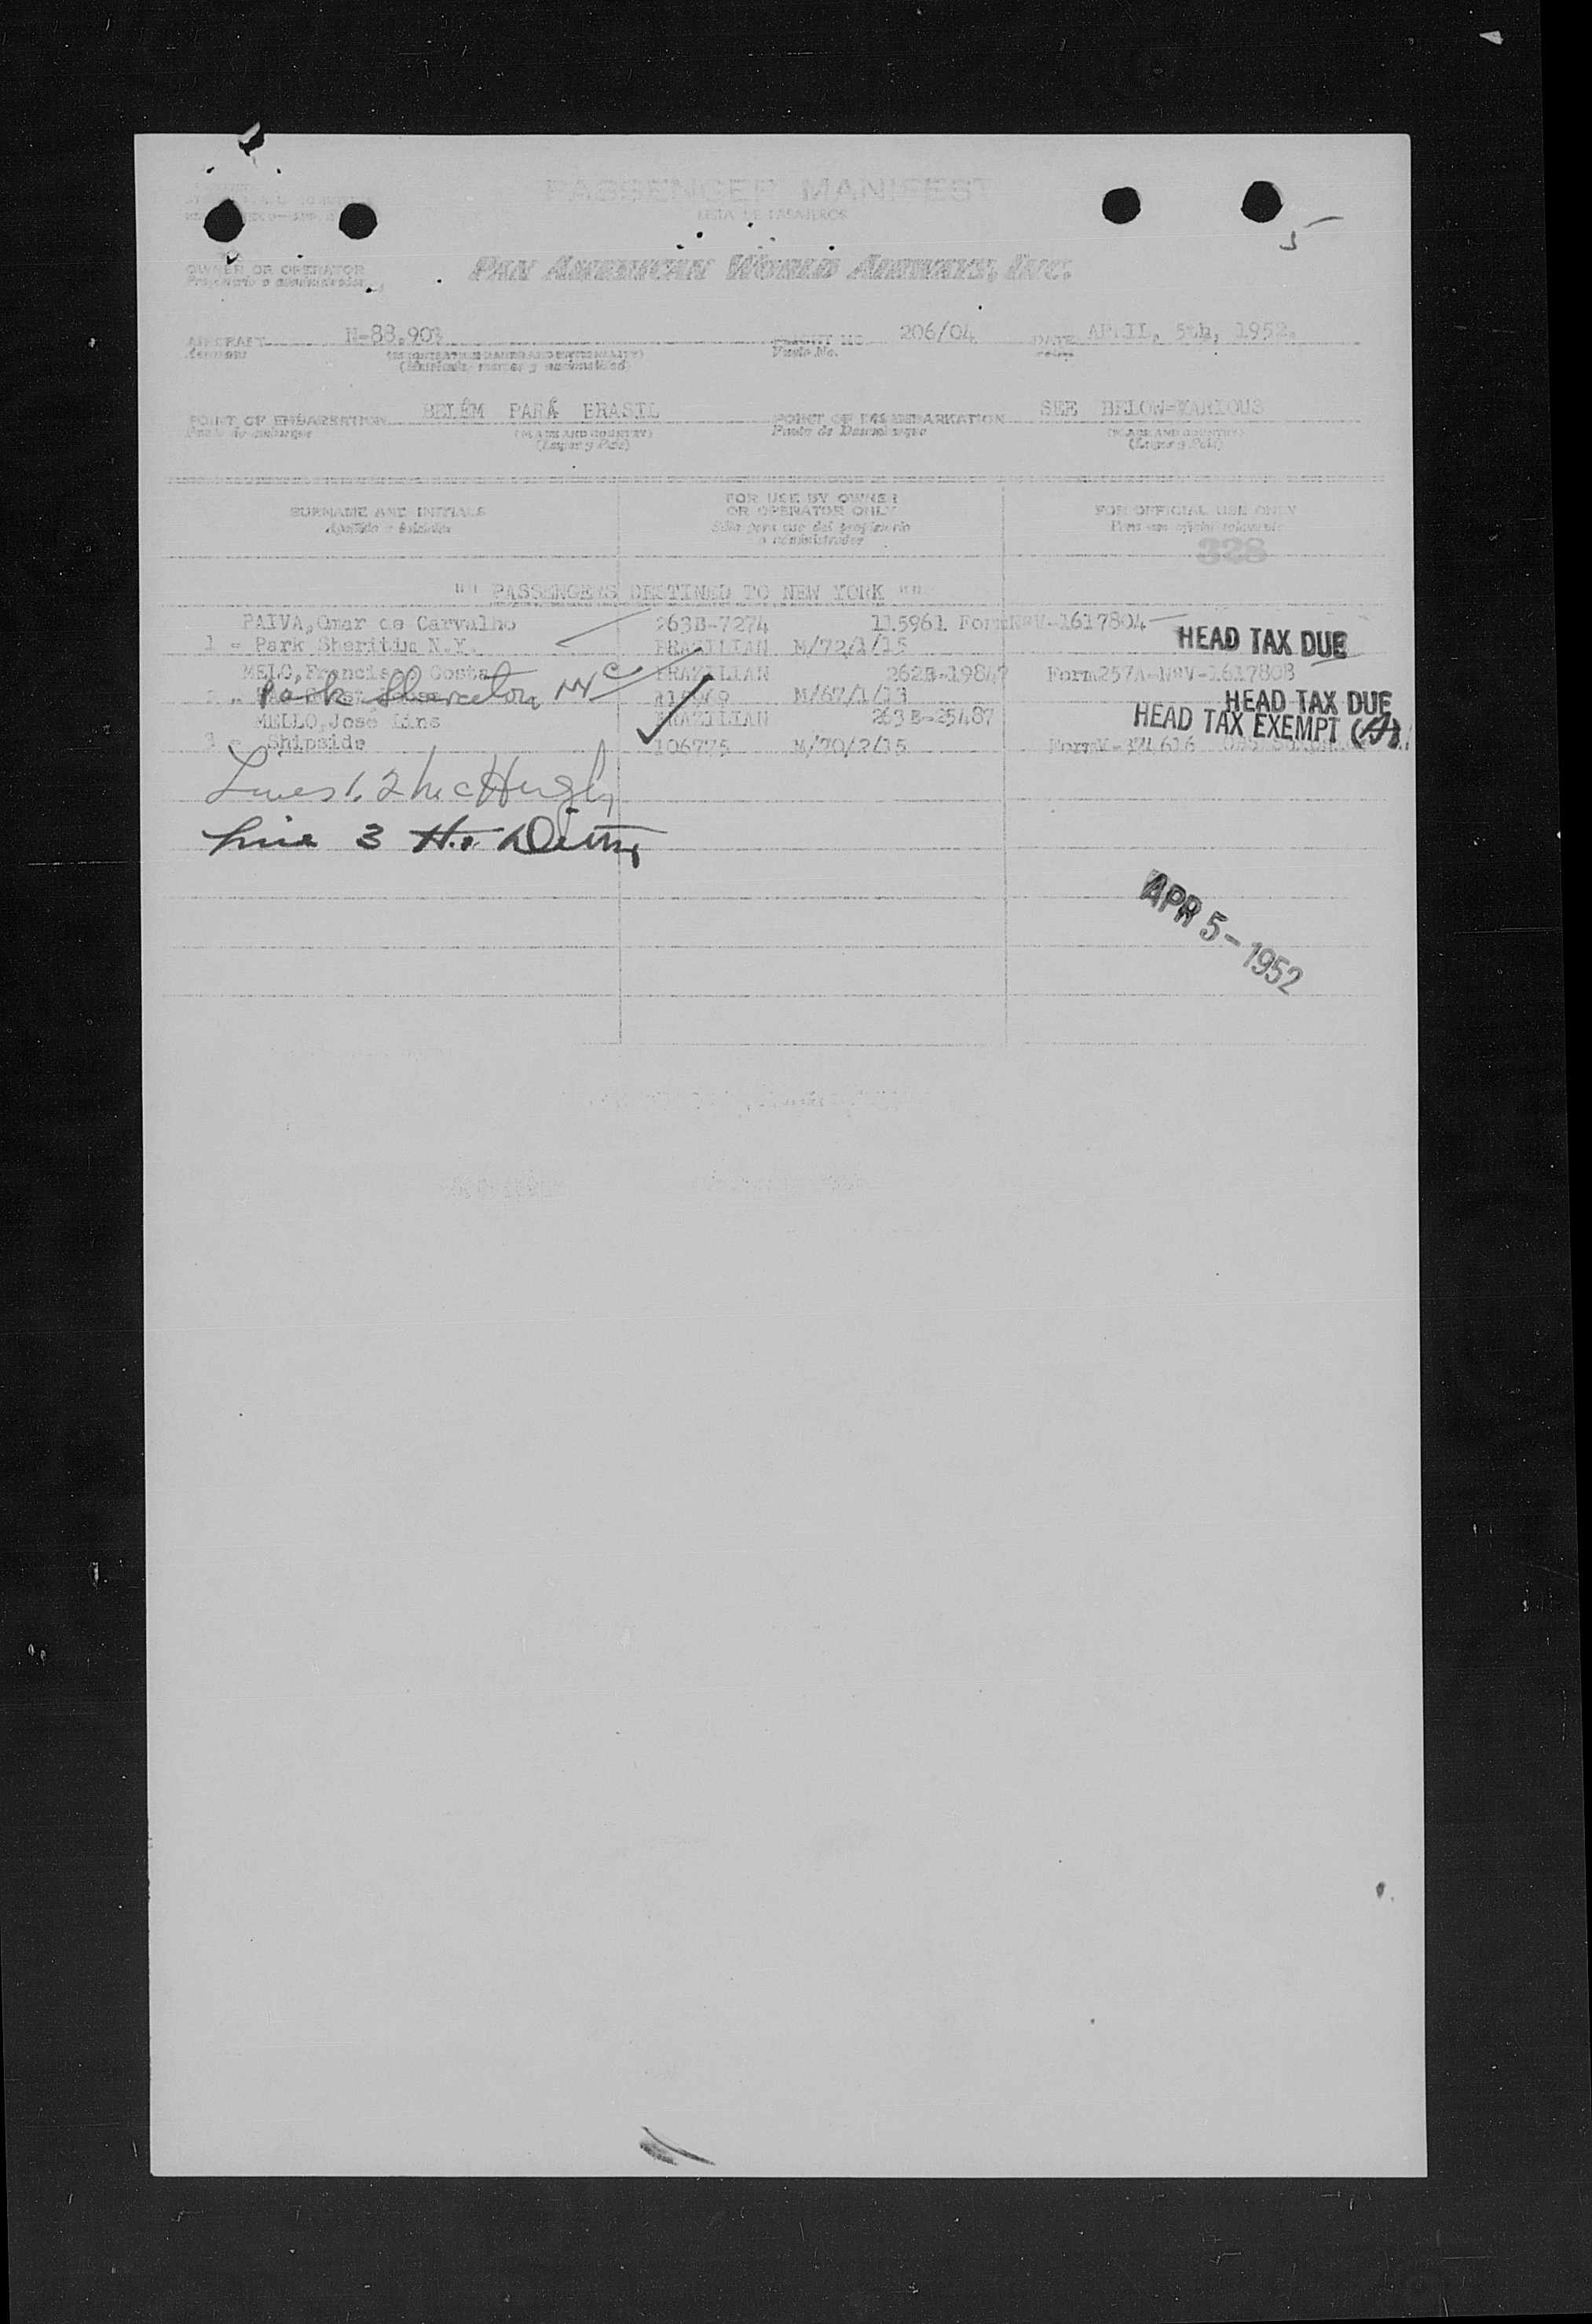 PASSENGER MANIFEST
LISTA DE PASAJEROS
5
OWNER OR OPERATOR
Propietario o administrador
PAN AMERICAN WORLD AIRWAYS, INC.
AIRCRAFT N-88.903 FLIGHT NO. 206/04 DATE APRIL, 5th, 1952.
Vuelo No.
(Matricula, marcas y nacionalidad)
POINT OF EMBARKATION BELÉM PARÁ BRASIL POINT OF DISEMBARKATION SEE BELOW-VARIOUS
Punto de embarque (PLACE AND COUNTRY) Punto de Desembarque (PLACE AND COUNTRY)
(Lugar y País) (Lugar y País)
SURNAME AND INITIALS FOR USE BY OWNER OR OPERATOR ONLY FOR OFFICIAL USE ONLY
Apellido e Iniciales Sólo para uso del propietario o administrador Para uso oficial solamente
328
"" PASSENGERS DESTINED TO NEW YORK ""
PAIVA, Omar de Carvalho 263B-7274 115961 Form NRV-1617804
1 - Park Sheritim N.Y. BRAZILIAN M/72/1/15 HEAD TAX DUE
MELO, Francisco Costa BRAZILIAN 262B-19847 Form257A-NRV-1617803
Park Sheraton NYC M/67/1/13 HEAD TAX DUE
MELLO, José Lins BRAZILIAN 263B-25487 HEAD TAX EXEMPT
3 - Shipside 106775 M/70/2/15
Lines 1, 2 McHugh
Line 3 H.
APR 5 - 1952